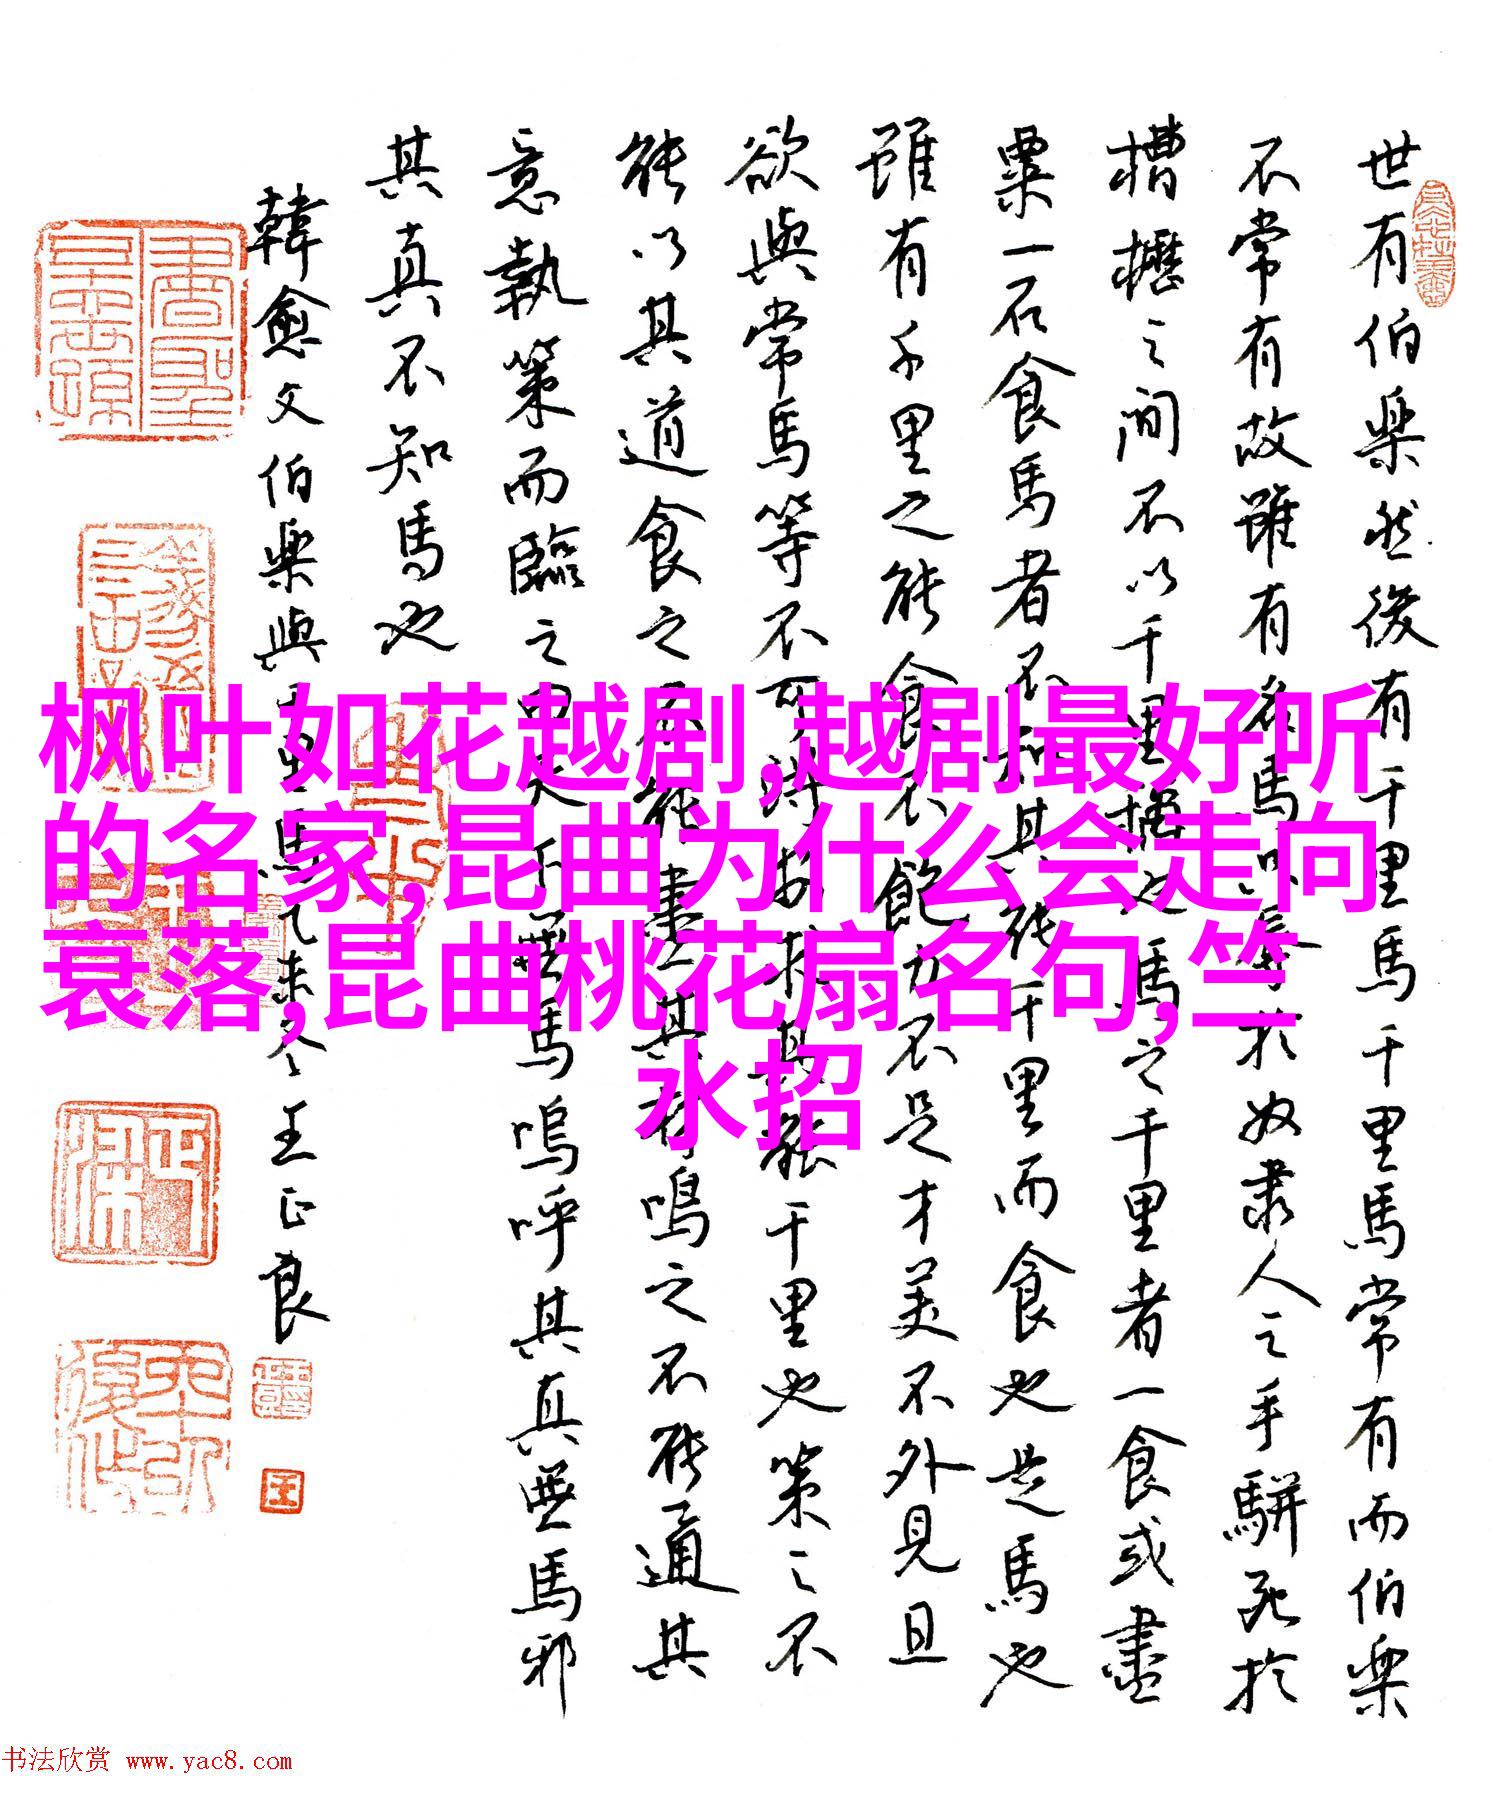 世有伯樂然後有千里馬千里馬常有而伯樂
不常有故雖有名馬辱於奴隶人之手駢死於
槽櫪之间不以千里稱也馬之千里者一食或盡
粟一石食馬者不知其能千里而食也是馬也
雖有千里之能食不飽力不足才美不外見且
欲與常馬等不可得安求其能千里也策之不
能以其道食之不能盡其材鳴之不能通其
意執策而臨之曰天下無馬嗚呼其真無馬邪
其真不知馬也
韓愈文伯樂與千里馬乙未冬王正良
枫叶如花越剧,越剧最好听
的名家,昆曲为什么会走向
衰落,昆曲桃花扇名句,竺
水招
书法欣赏 www.yac8.com